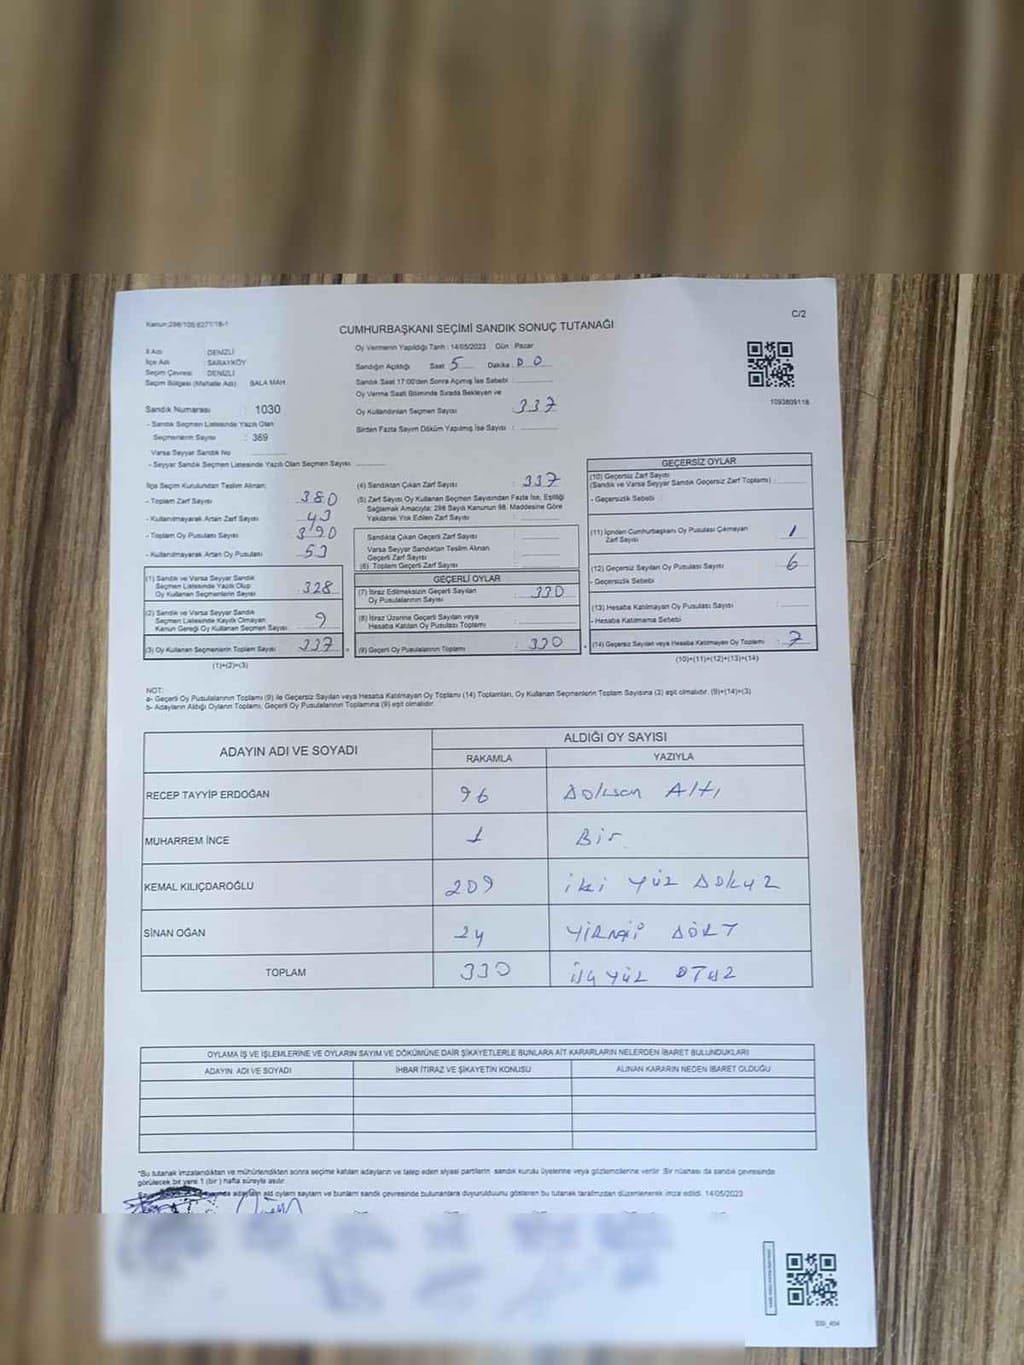 Kanun:298/105/6271/18-1
C/2
CUMHURBAŞKANI SEÇİMİ SANDIK SONUÇ TUTANAĞI
İl Adı : DENİZLİ
İlçe Adı : SARAYKÖY
Seçim Çevresi : DENİZLİ
Seçim Bölgesi (Mahalle Adı) : BALA MAH
Sandık Numarası : 1030
- Sandık Seçmen Listesinde Yazılı Olan
Seçmenlerin Sayısı : 369
Varsa Seyyar Sandık No
- Seyyar Sandık Seçmen Listesinde Yazılı Olan Seçmen Sayısı
Oy Vermenin Yapıldığı Tarih : 14/05/2023 Gün : Pazar
Sandığın Açıldığı Saat 5 Dakika : 00
Sandık Saat 17:00'den Sonra Açılmış İse Sebebi :
Oy Verme Saati Bitiminde Sırada Bekleyen ve
Oy Kullandırılan Seçmen Sayısı : 337
Birden Fazla Sayım Döküm Yapılmış İse Sayısı :
1093809118
İlçe Seçim Kurulundan Teslim Alınan:
- Toplam Zarf Sayısı : 380
- Kullanılmayarak Artan Zarf Sayısı : 43
- Toplam Oy Pusulası Sayısı : 390
- Kullanılmayarak Artan Oy Pusulası : 53
(1) Sandık ve Varsa Seyyar Sandık
Seçmen Listesinde Yazılı Olup
Oy Kullanan Seçmenlerin Sayısı : 328
(2) Sandık ve Varsa Seyyar Sandık
Seçmen Listesinde Kayıtlı Olmayan
Kanun Gereği Oy Kullanan Seçmen Sayısı : 9
(3) Oy Kullanan Seçmenlerin Toplam Sayısı : 337
(1)+(2)=(3)
(4) Sandıktan Çıkan Zarf Sayısı : 337
(5) Zarf Sayısı Oy Kullanan Seçmen Sayısından Fazla İse, Eşitliği
Sağlamak Amacıyla; 298 Sayılı Kanunun 98. Maddesine Göre
Yakılarak Yok Edilen Zarf Sayısı :
Sandıkta Çıkan Geçerli Zarf Sayısı :
Varsa Seyyar Sandıktan Teslim Alınan
Geçerli Zarf Sayısı :
(6) Toplam Geçerli Zarf Sayısı :
GEÇERLİ OYLAR
(7) İtiraz Edilmeksizin Geçerli Sayılan
Oy Pusulalarının Sayısı : 330
(8) İtiraz Üzerine Geçerli Sayılan veya
Hesaba Katılan Oy Pusulası Toplamı :
(9) Geçerli Oy Pusulalarının Toplamı : 330
GEÇERSİZ OYLAR
(10) Geçersiz Zarf Sayısı
(Sandık ve Varsa Seyyar Sandık Geçersiz Zarf Toplamı) :
- Geçersizlik Sebebi :
(11) İçinden Cumhurbaşkanı Oy Pusulası Çıkmayan
Zarf Sayısı : 1
(12) Geçersiz Sayılan Oy Pusulası Sayısı : 6
- Geçersizlik Sebebi
(13) Hesaba Katılmayan Oy Pusulası Sayısı :
- Hesaba Katılmama Sebebi :
(14) Geçersiz Sayılan veya Hesaba Katılmayan Oy Toplamı : 7
(10)+(11)+(12)+(13)=(14)
NOT:
a- Geçerli Oy Pusulalarının Toplamı (9) ile Geçersiz Sayılan veya Hesaba Katılmayan Oy Toplamı (14) Toplamları, Oy Kullanan Seçmenlerin Toplam Sayısına (3) eşit olmalıdır. (9)+(14)=(3)
b- Adayların Aldığı Oyların Toplamı, Geçerli Oy Pusulalarının Toplamına (9) eşit olmalıdır.
ADAYIN ADI VE SOYADI
ALDIĞI OY SAYISI
RAKAMLA YAZIYLA
RECEP TAYYİP ERDOĞAN 96 Doksan Altı
MUHARREM İNCE 1 Bir
KEMAL KILIÇDAROĞLU 209 iki YÜZ DOKUZ
SİNAN OĞAN 24 YİRMİ DÖRT
TOPLAM 330 üç YÜZ OTUZ
OYLAMA İŞ VE İŞLEMLERİNE VE OYLARIN SAYIM VE DÖKÜMÜNE DAİR ŞİKAYETLERLE BUNLARA AİT KARARLARIN NELERDEN İBARET BULUNDUKLARI
ADAYIN ADI VE SOYADI İHBAR İTİRAZ VE ŞİKAYETİN KONUSU ALINAN KARARIN NEDEN İBARET OLDUĞU
*Bu tutanak imzalandıktan ve mühürlendikten sonra seçime katılan adayların ve talep eden siyasi partilerin sandık kurulu üyelerine veya gözlemcilerine verilir. Bir nüshası da sandık çevresinde
görülecek bir yere 1 (bir) hafta süreyle asılır.
adayların aldıkları oyların sayısını ve bunların sandık çevresinde bulunanlara duyurulduğunu gösteren bu tutanak tarafımızdan düzenlenerek imza edildi. 14/05/2023